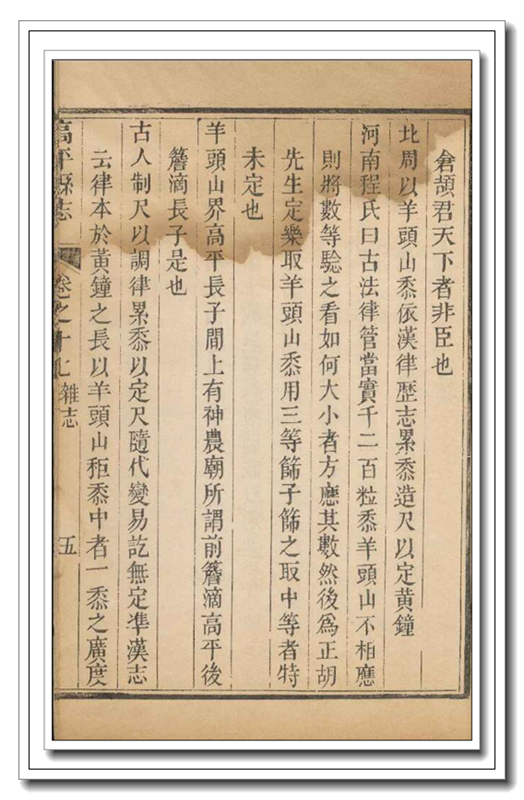 倉頡君天下者非臣也
北周以羊頭山黍依漢律歷志累黍造尺以定黃鐘
河南程氏曰古法律管當實千二百粒黍羊頭山不相應
則將數等驗之看如何大小者方應其數然後爲正胡
先生定樂取羊頭山黍用三等篩子篩之取中等者特
未定也
羊頭山界高平長子間上有神農廟所謂前簷滴高平後
簷滴長子是也
古人制尺以調律累黍以定尺隨代變易訖無定準漢志
云律本於黃鐘之長以羊頭山秬黍中者一黍之廣度
高平縣志 卷之十七 雜志 五